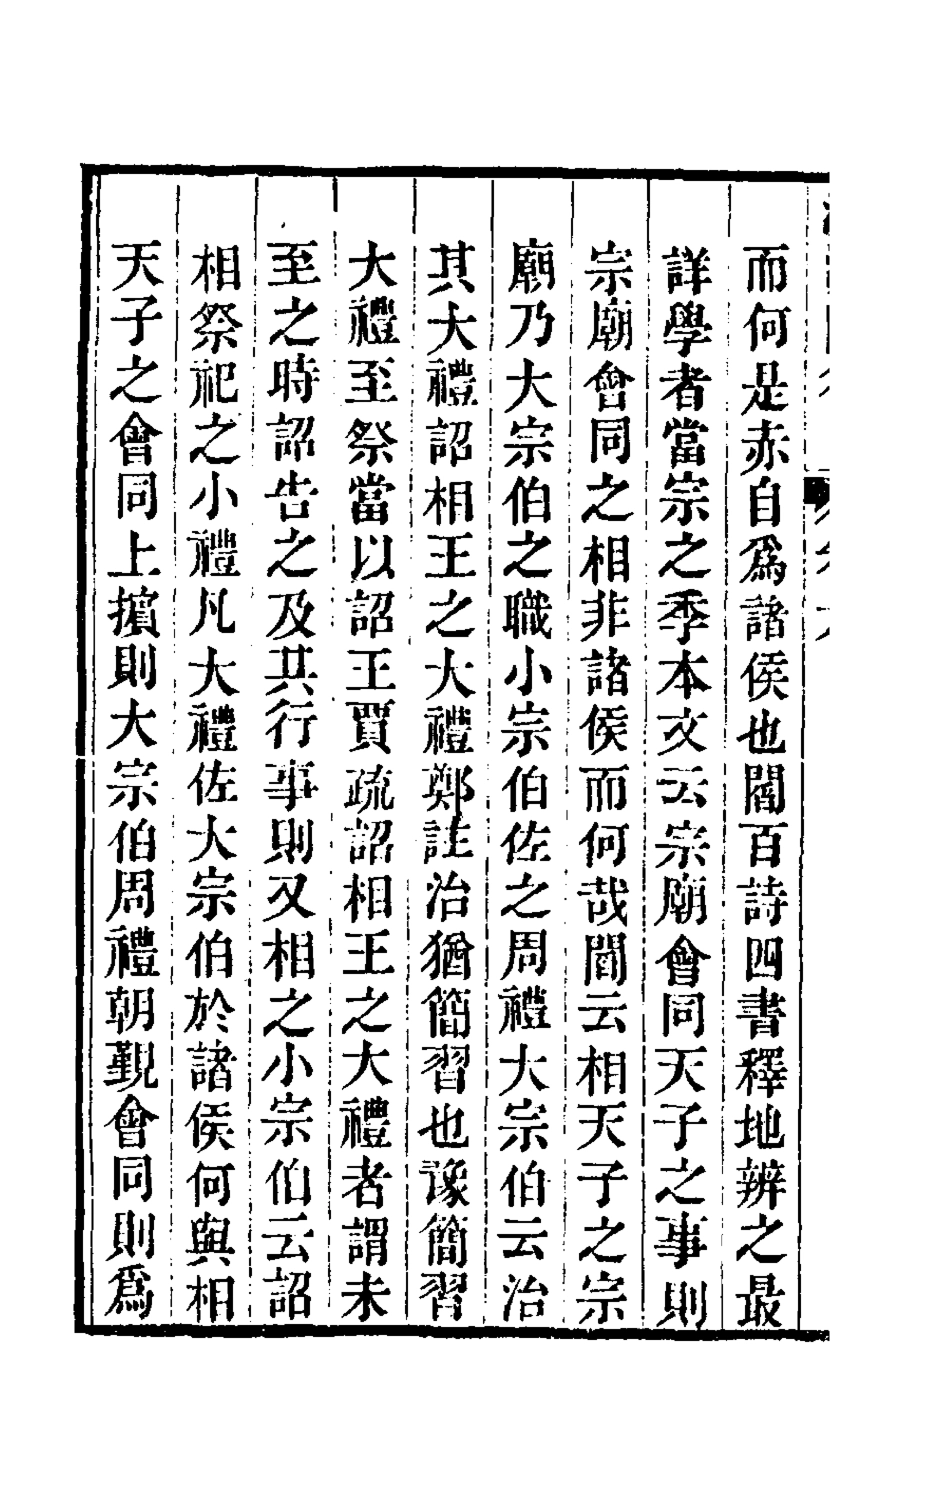 而何是赤自爲諸侯也閻百詩四書釋地辨之最
詳學者當宗之季本文云宗廟會同天子之事則
宗廟會同之相非諸侯而何哉閻云相天子之宗
廟乃大宗伯之職小宗伯佐之周禮大宗伯云治
其大禮詔相王之大禮鄭註治猶簡習也豫簡習
大禮至祭當以詔王賈疏詔相王之大禮者謂未
至之時詔告之及其行事則又相之小宗伯云詔
相祭祀之小禮凡大禮佐大宗伯於諸侯何與相
天子之會同上擯則大宗伯周禮朝覲會同則爲